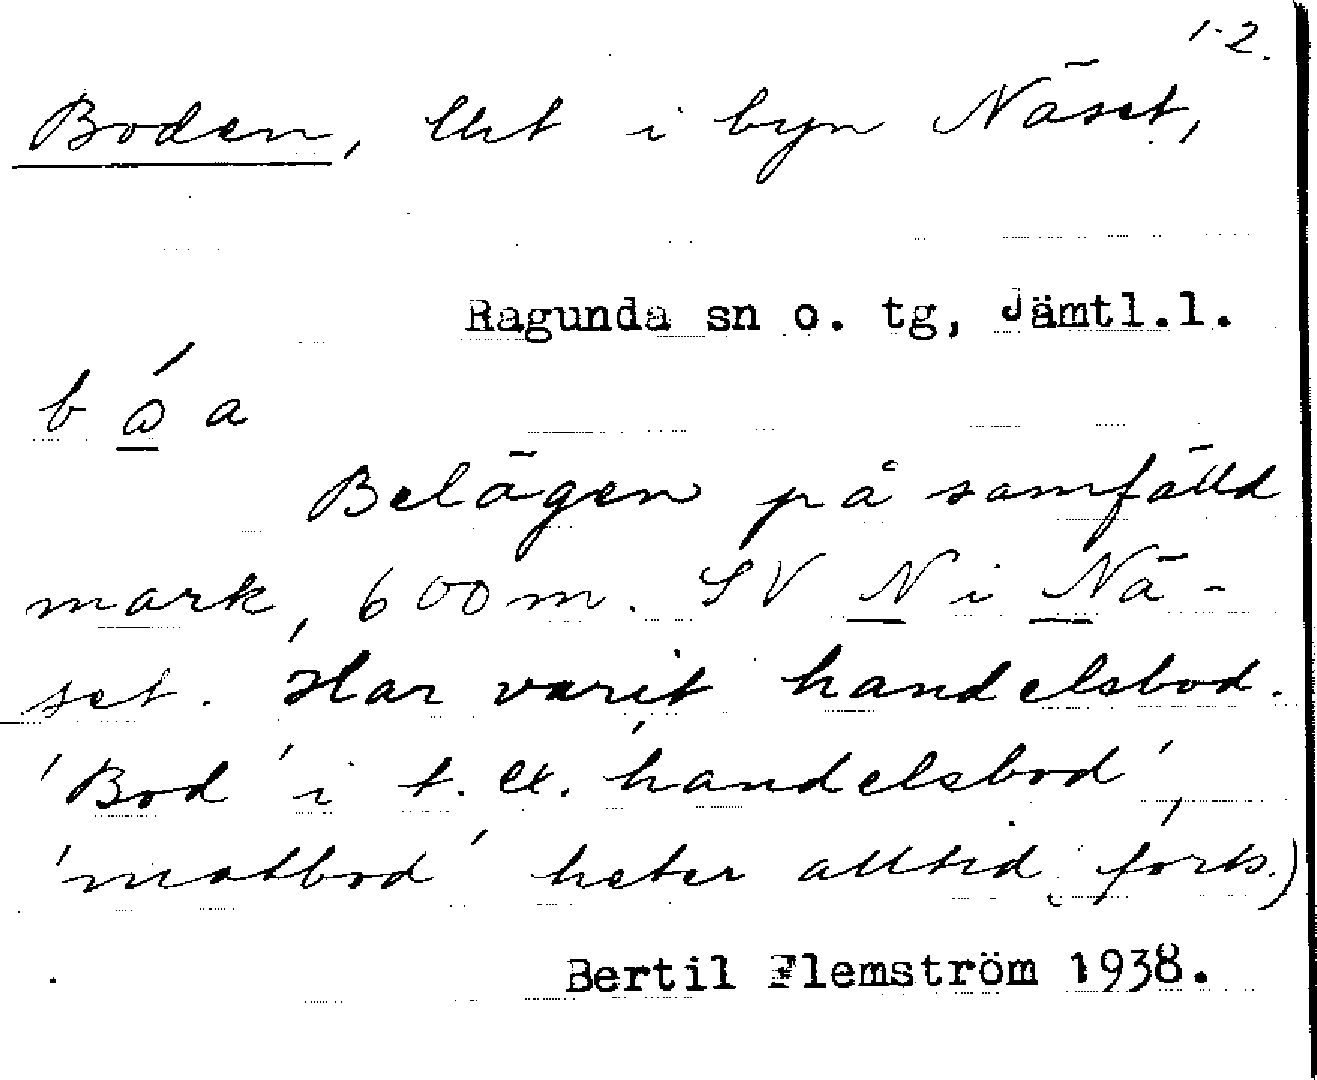 1-2.
Boden, lht i byn Näset,
Ragunda sn o. tg, Jämtl.l.
b ǻ a
Belägen på samfälld
mark, 600 m. SV N i Nä-
set. Har varit handelsbod.
'Bod' i t. ex. 'handelsbod',
'matbod' heter alltid (forts.)
Bertil Flemström 1938.